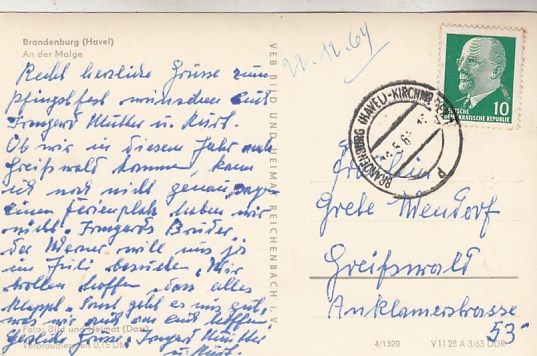 Brandenburg (Havel)
An der Malge
Recht herzliche Grüsse zum
Pfingstfest wünschen Euch
Irmgard Mutter u. Kurt.
Ob wir in diesem Jahr nach
Greifswald kommen, kann
ich noch nicht genau sagen
einen Ferienplatz haben wir
nicht. Irmgards Bruder
der Werner will uns ja
im Juli besuchen. Wir
wollen hoffen, dass alles
klappt. Sonst geht es uns gut,
was wir auch von Euch hoffen
Herzliche Grüsse, Irmgard Mutter
u. Kurt.
Foto: Bild und Heimat
Verbraucherpreis 0,15 DM
VEB BILD UND HEIMAT REICHENBACH I. V.
22.12.64
BRANDENBURG (HAVEL)-KIRCHM
DEUTSCHE
DEMOKRATISCHE REPUBLIK
10
Fräulein
Grete Wendorf
Greifswald
Anklamerstrasse
53
4/1320 V 11 28 A 3/63 DDR